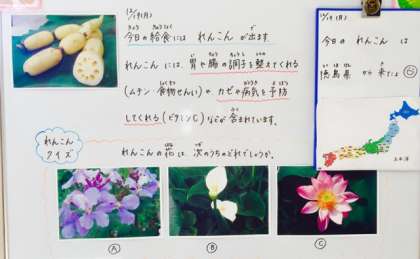 12/19(月)
今日の給食には れんこん が出ます。
れんこんには、胃や腸の調子を整えてくれる
(ムチン・食物せんい)の カゼや病気を予防
してくれる(ビタミンC)などが含まれています。
れんこん
クイズ
れんこんの花は、次のうちのどれでしょうか。
Ⓐ
Ⓑ
Ⓒ
12/19(月)
今日の れんこん は
徳島県 から 来たよ